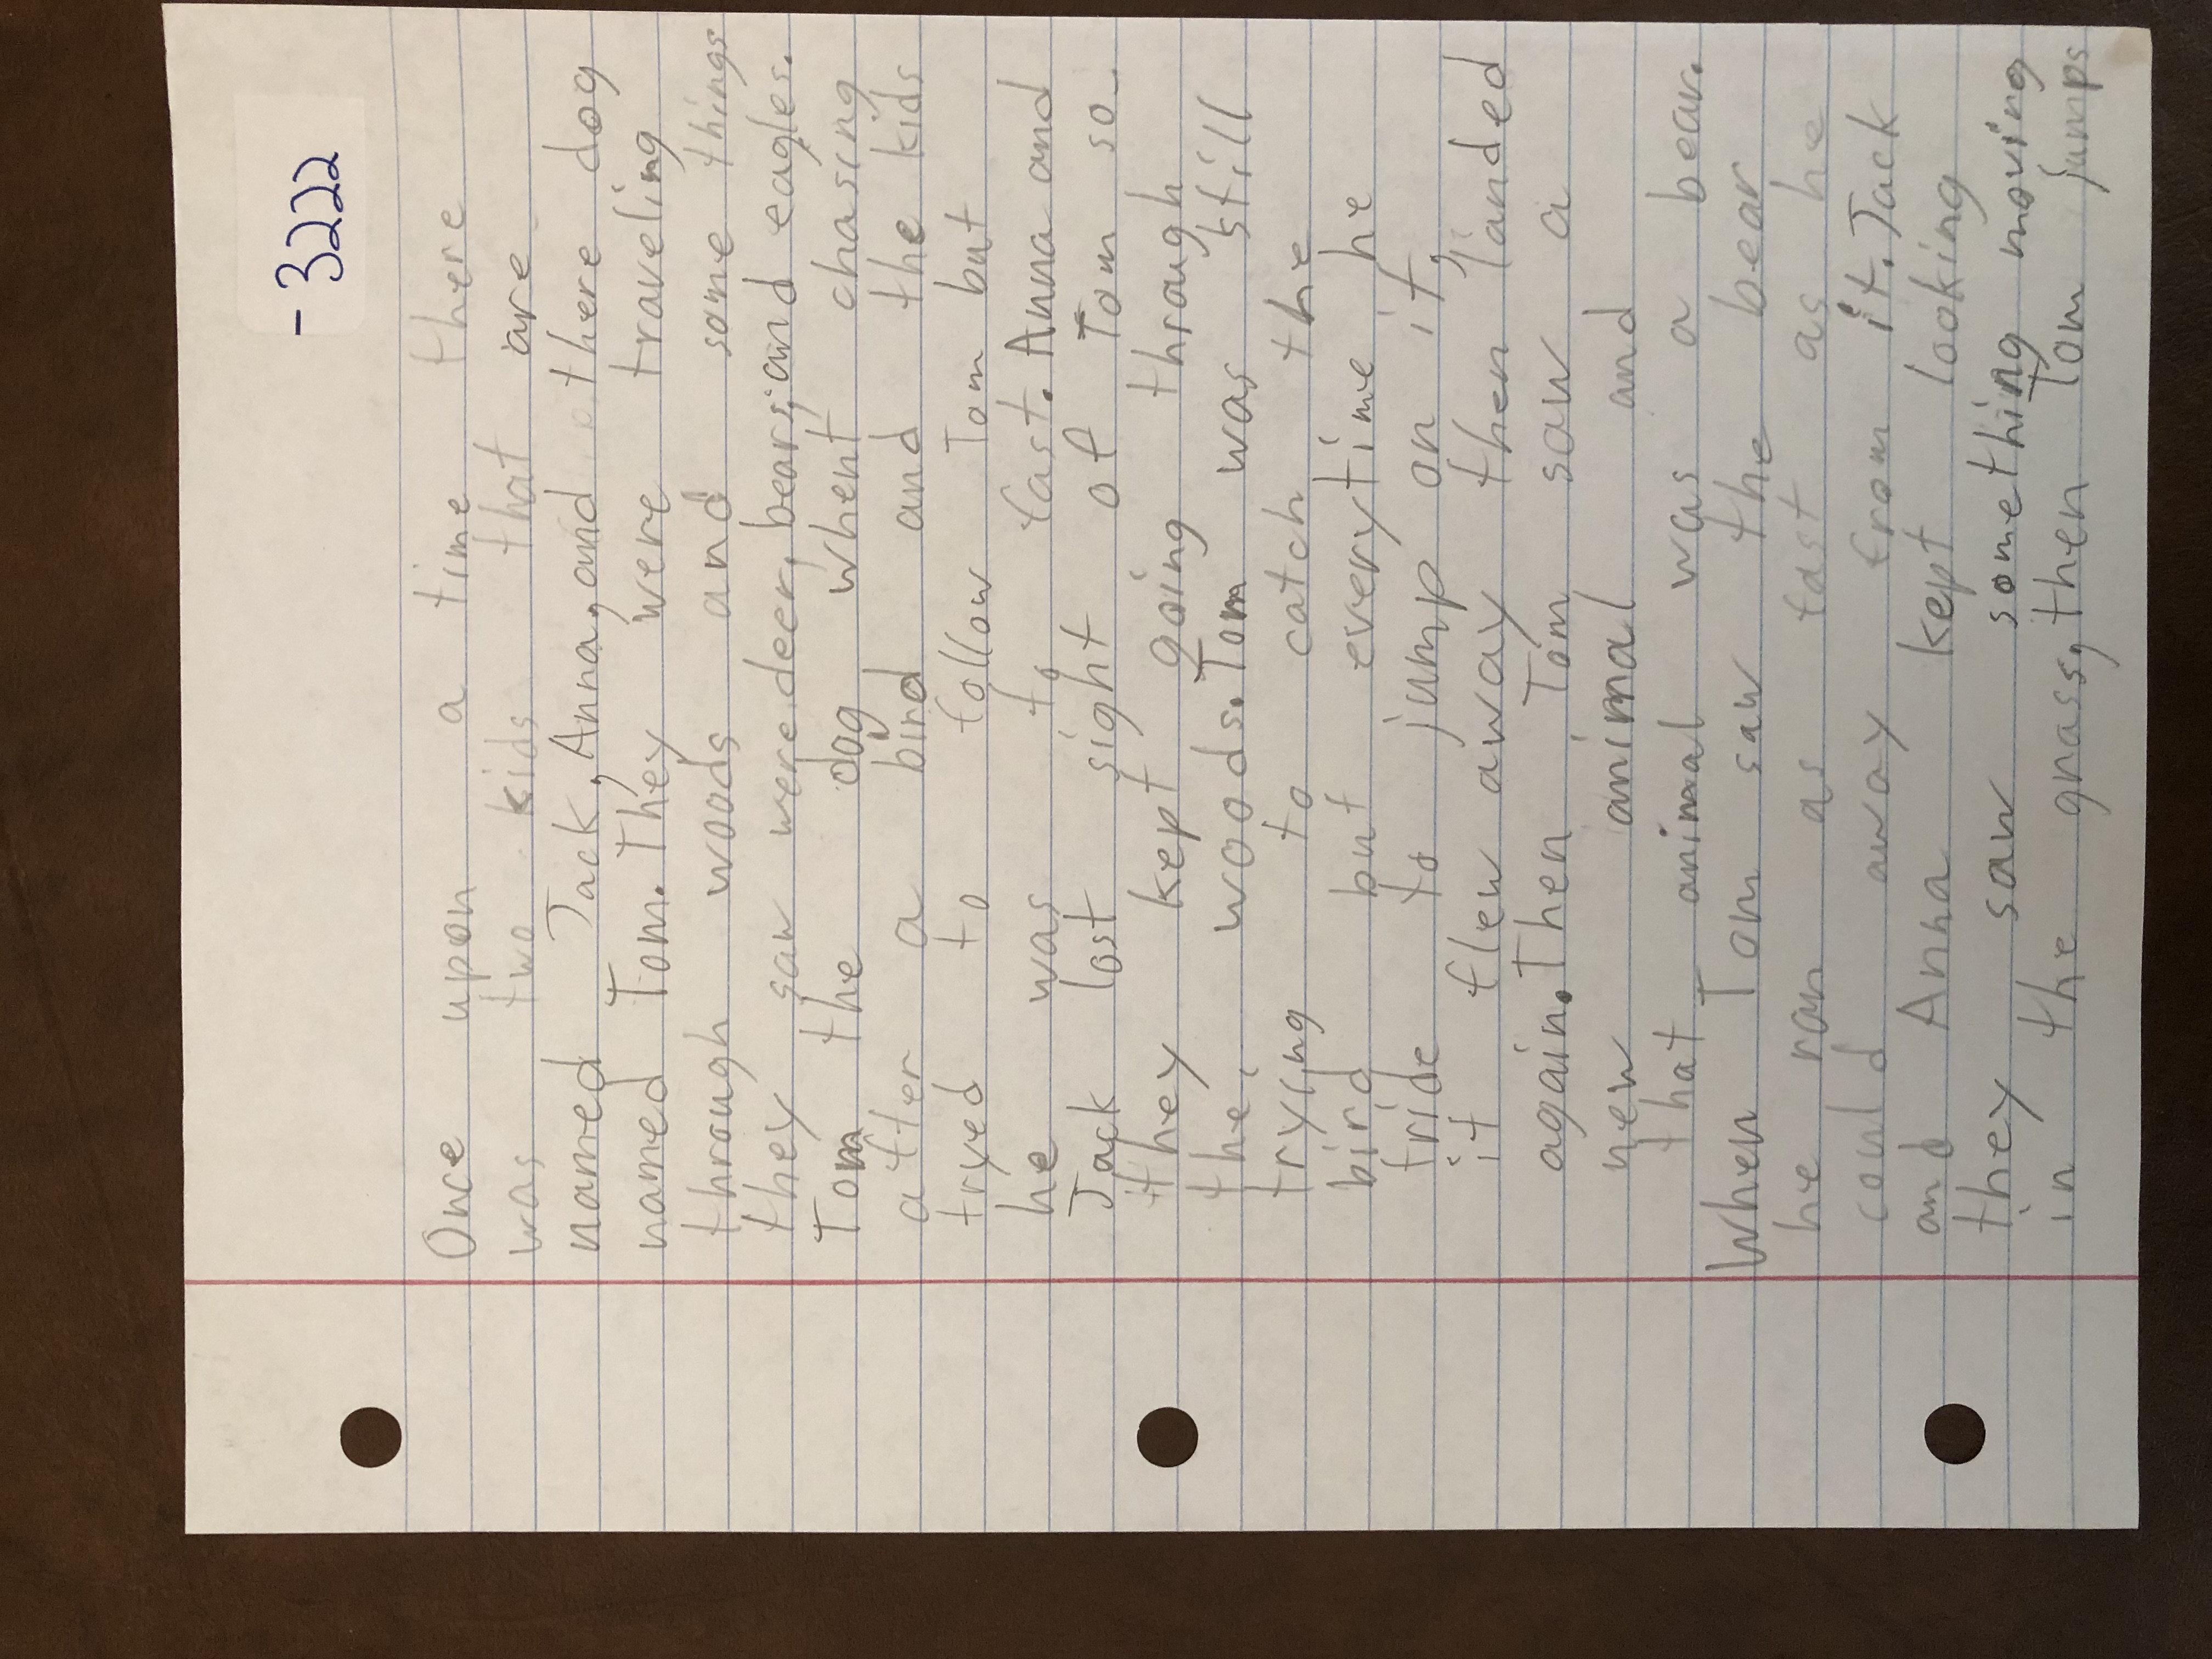 -3222
Once upon a time there
was two kids that are
named Jack, Anna, and there dog
named Tom. They were traveling
through woods and some things
they saw were deer, bears, and eagles.
Tom the dog whent chasing
after a bird and the kids
tryed to follow Tom but
he was to fast. Anna and
Jack lost sight of Tom so
they kept going through
the woods. Tom was still
trying to catch the
bird but everytime he
tride to jump on it,
it flew away then landed
again. Then Tom saw a
new animal and
that animal was a bear.
When Tom saw the bear
he ran as fast as he
could away from it. Jack
and Anna kept looking
they saw something moving
in the grass, then Tom jumps